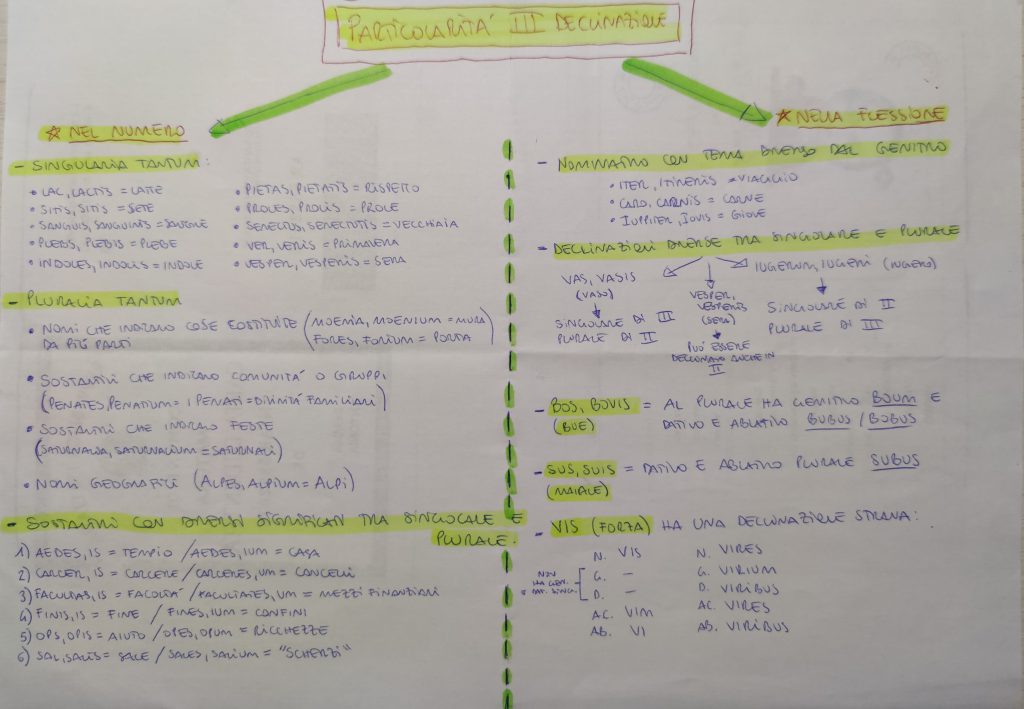 PARTICOLARITÀ III DECLINAZIONE
☆ NEL NUMERO
- SINGULARIA TANTUM:
• LAC, LACTIS = LATTE
• SITIS, SITIS = SETE
• SANGUIS, SANGUINIS = SANGUE
• PLEBS, PLEBIS = PLEBE
• INDOLES, INDOLIS = INDOLE
• PIETAS, PIETATIS = RISPETTO
• PROLES, PROLIS = PROLE
• SENECTUS, SENECTUTIS = VECCHIAIA
• VER, VERIS = PRIMAVERA
• VESPER, VESPERIS = SERA
- PLURALIA TANTUM
• NOMI CHE INDICANO COSE COSTITUITE (MOENIA, MOENIUM = MURA
DA PIÙ PARTI FORES, FORIUM = PORTA)
• SOSTANTIVI CHE INDICANO COMUNITÀ O GRUPPI
(PENATES, PENATIUM = I PENATI = DIVINITÀ FAMILIARI)
• SOSTANTIVI CHE INDICANO FESTE
(SATURNALIA, SATURNALIUM = SATURNALI)
• NOMI GEOGRAFICI (ALPES, ALPIUM = ALPI)
- SOSTANTIVI CON DIVERSI SIGNIFICATI TRA SINGOLARE E
PLURALE.
1) AEDES, IS = TEMPIO / AEDES, IUM = CASA
2) CARCER, IS = CARCERE / CARCERES, UM = CANCELLI
3) FACULTAS, IS = FACOLTÀ / FACULTATES, UM = MEZZI FINANZIARI
4) FINIS, IS = FINE / FINES, IUM = CONFINI
5) OPS, OPIS = AIUTO / OPES, OPUM = RICCHEZZE
6) SAL, SALIS = SALE / SALES, SALIUM = "SCHERZI"
☆ NELLA FLESSIONE
- NOMINATIVO CON TEMA DIVERSO DAL GENITIVO
• ITER, ITINERIS = VIAGGIO
• CARO, CARNIS = CARNE
• IUPPITER, IOVIS = GIOVE
- DECLINAZIONI DIVERSE TRA SINGOLARE E PLURALE
VAS, VASIS
(VASO)
SINGOLARE DI III
PLURALE DI II
VESPER,
VESPERIS
(SERA)
PUÒ ESSERE
DECLINATO ANCHE IN
II
IUGERUM, IUGERI (IUGERO)
SINGOLARE DI II
PLURALE DI III
- BOS, BOVIS = AL PLURALE HA GENITIVO BOUM E
(BUE) DATIVO E ABLATIVO BUBUS / BOBUS
- SUS, SUIS = DATIVO E ABLATIVO PLURALE SUBUS
(MAIALE)
- VIS (FORZA) HA UNA DECLINAZIONE STRANA:
N. VIS
G. -
D. -
AC. VIM
AB. VI
NON
HA GEN.
E DAT. SING.
N. VIRES
G. VIRIUM
D. VIRIBUS
AC. VIRES
AB. VIRIBUS